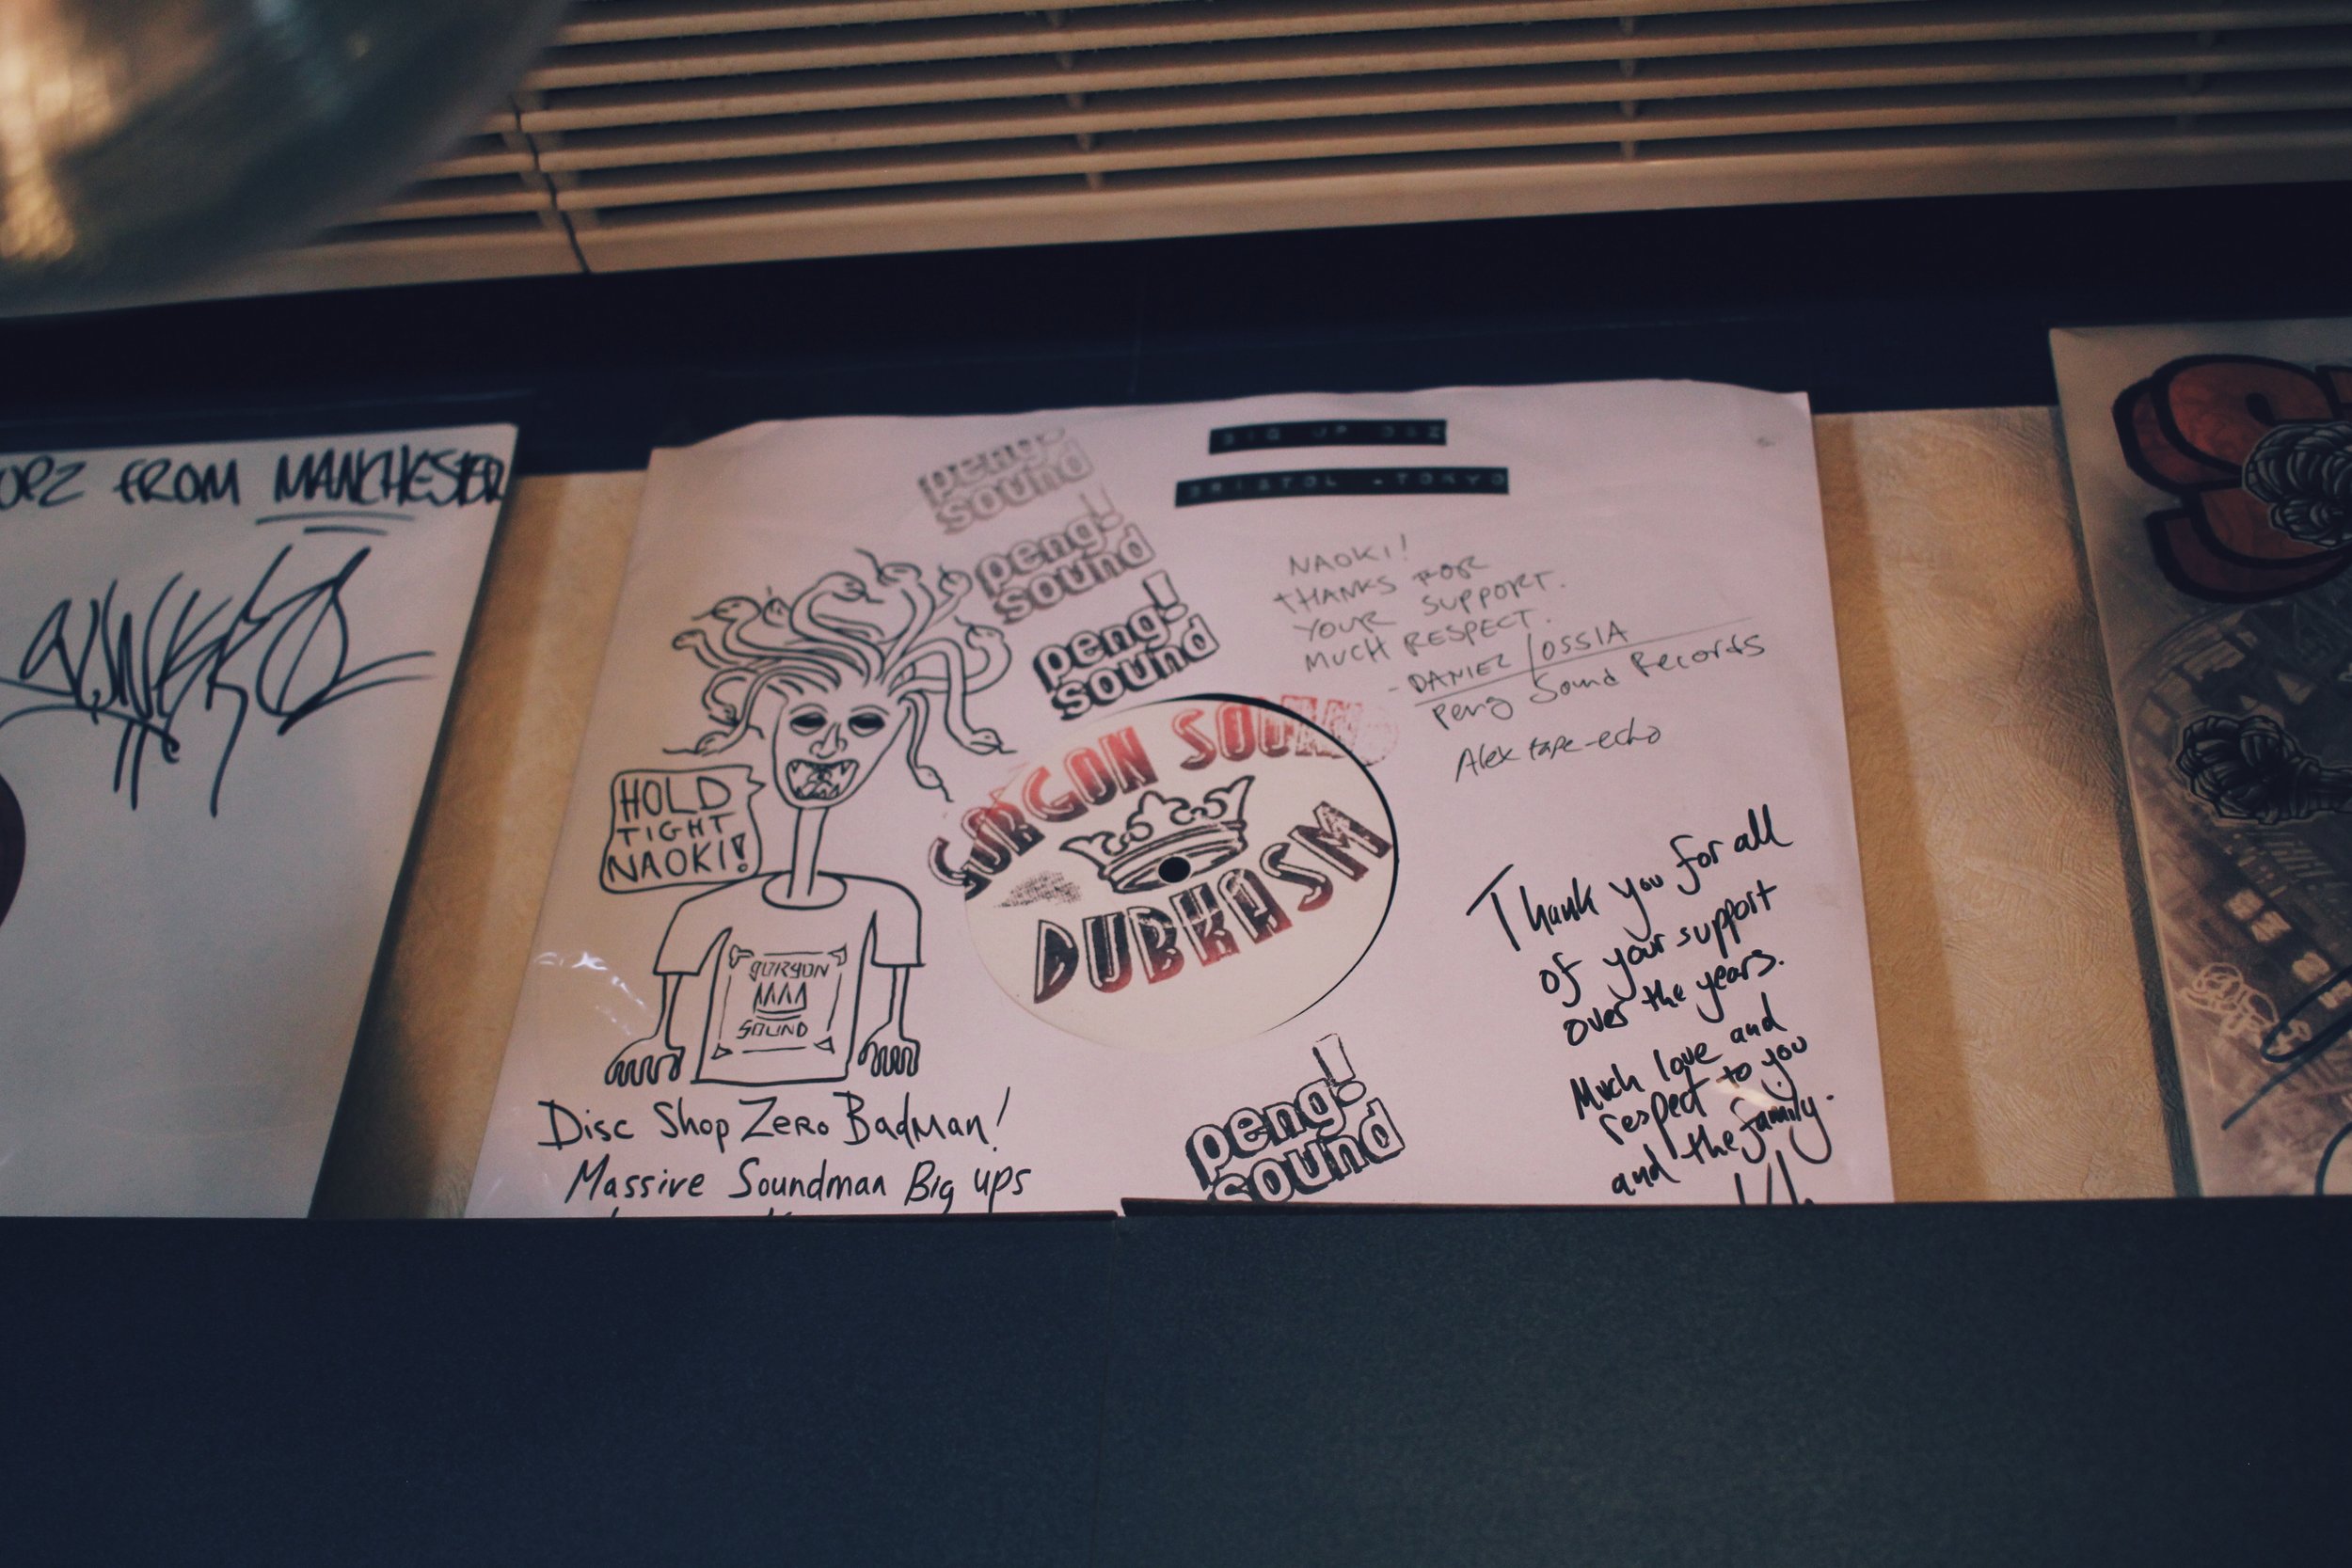 UPZ FROM MANCHESTER
peng!
sound
peng!
sound
peng!
sound
BIG UP DSZ
BRISTOL - TOKYO
NAOKI!
THANKS FOR
YOUR SUPPORT.
MUCH RESPECT.
- DANIEL / OSSIA
Peng Sound Records
Alex tape-echo
HOLD
TIGHT
NAOKI!
GORGON
SOUND
GORGON SOUND
DUBKASM
Disc Shop Zero Badman!
Massive Soundman Big ups
peng!
sound
Thank you for all
of your support
over the years.
Much love and
respect to you
and the family.